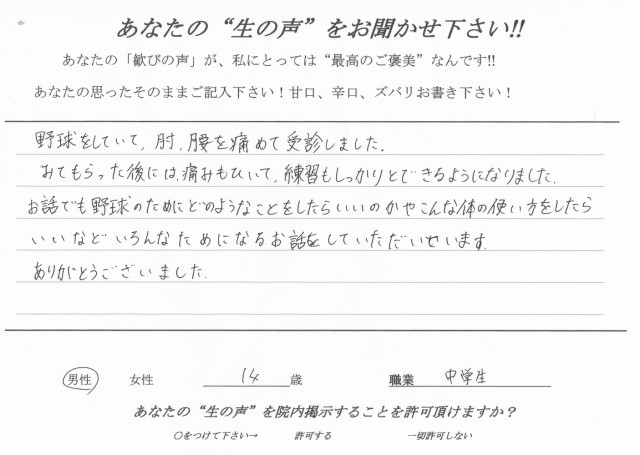 あなたの“生の声”をお聞かせ下さい!!
あなたの「歓びの声」が、私にとっては“最高のご褒美”なんです!!
あなたの思ったそのままご記入下さい！甘口、辛口、ズバリお書き下さい！
野球をしていて、肘、腰を痛めて受診しました。
みてもらった後には、痛みもひいて、練習もしっかりとできるようになりました。
お話でも野球のためにどのようなことをしたらいいのかやこんな体の使い方をしたら
いいなどいろんなためになるお話をしていただいています。
ありがとうございました。
男性 女性 14 歳 職業 中学生
あなたの“生の声”を院内掲示することを許可頂けますか？
○をつけて下さい→ 許可する 一切許可しない